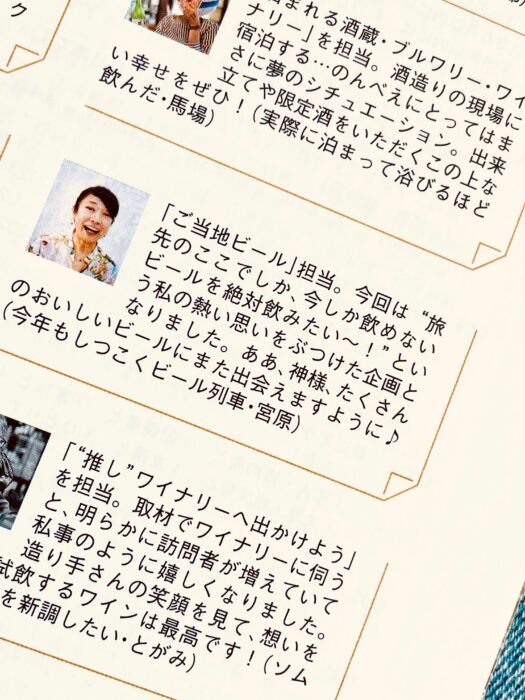 ク
まれる酒蔵・ブルワリー・ワイ
ナリー」を担当。酒造りの現場に
宿泊する…のんべえにとってはま
さに夢のシチュエーション。出来
立てや限定酒をいただくこの上な
い幸せをぜひ！（実際に泊まって浴びるほど
飲んだ・馬場）
「ご当地ビール」担当。今回は“旅
先のここでしか、今しか飲めない
ビールを絶対飲みたい〜！”とい
う私の熱い思いをぶつけた企画と
なりました。ああ、神様、たくさん
のおいしいビールにまた出会えますように♪
（今年もしつこくビール列車・宮原）
「“推し”ワイナリーへ出かけよう」
を担当。取材でワイナリーに伺う
と、明らかに訪問者が増えていて
私事のように嬉しくなりました。
造り手さんの笑顔を見て、想いを
試飲するワインは最高です！（ソム
を新調したい・とがみ）